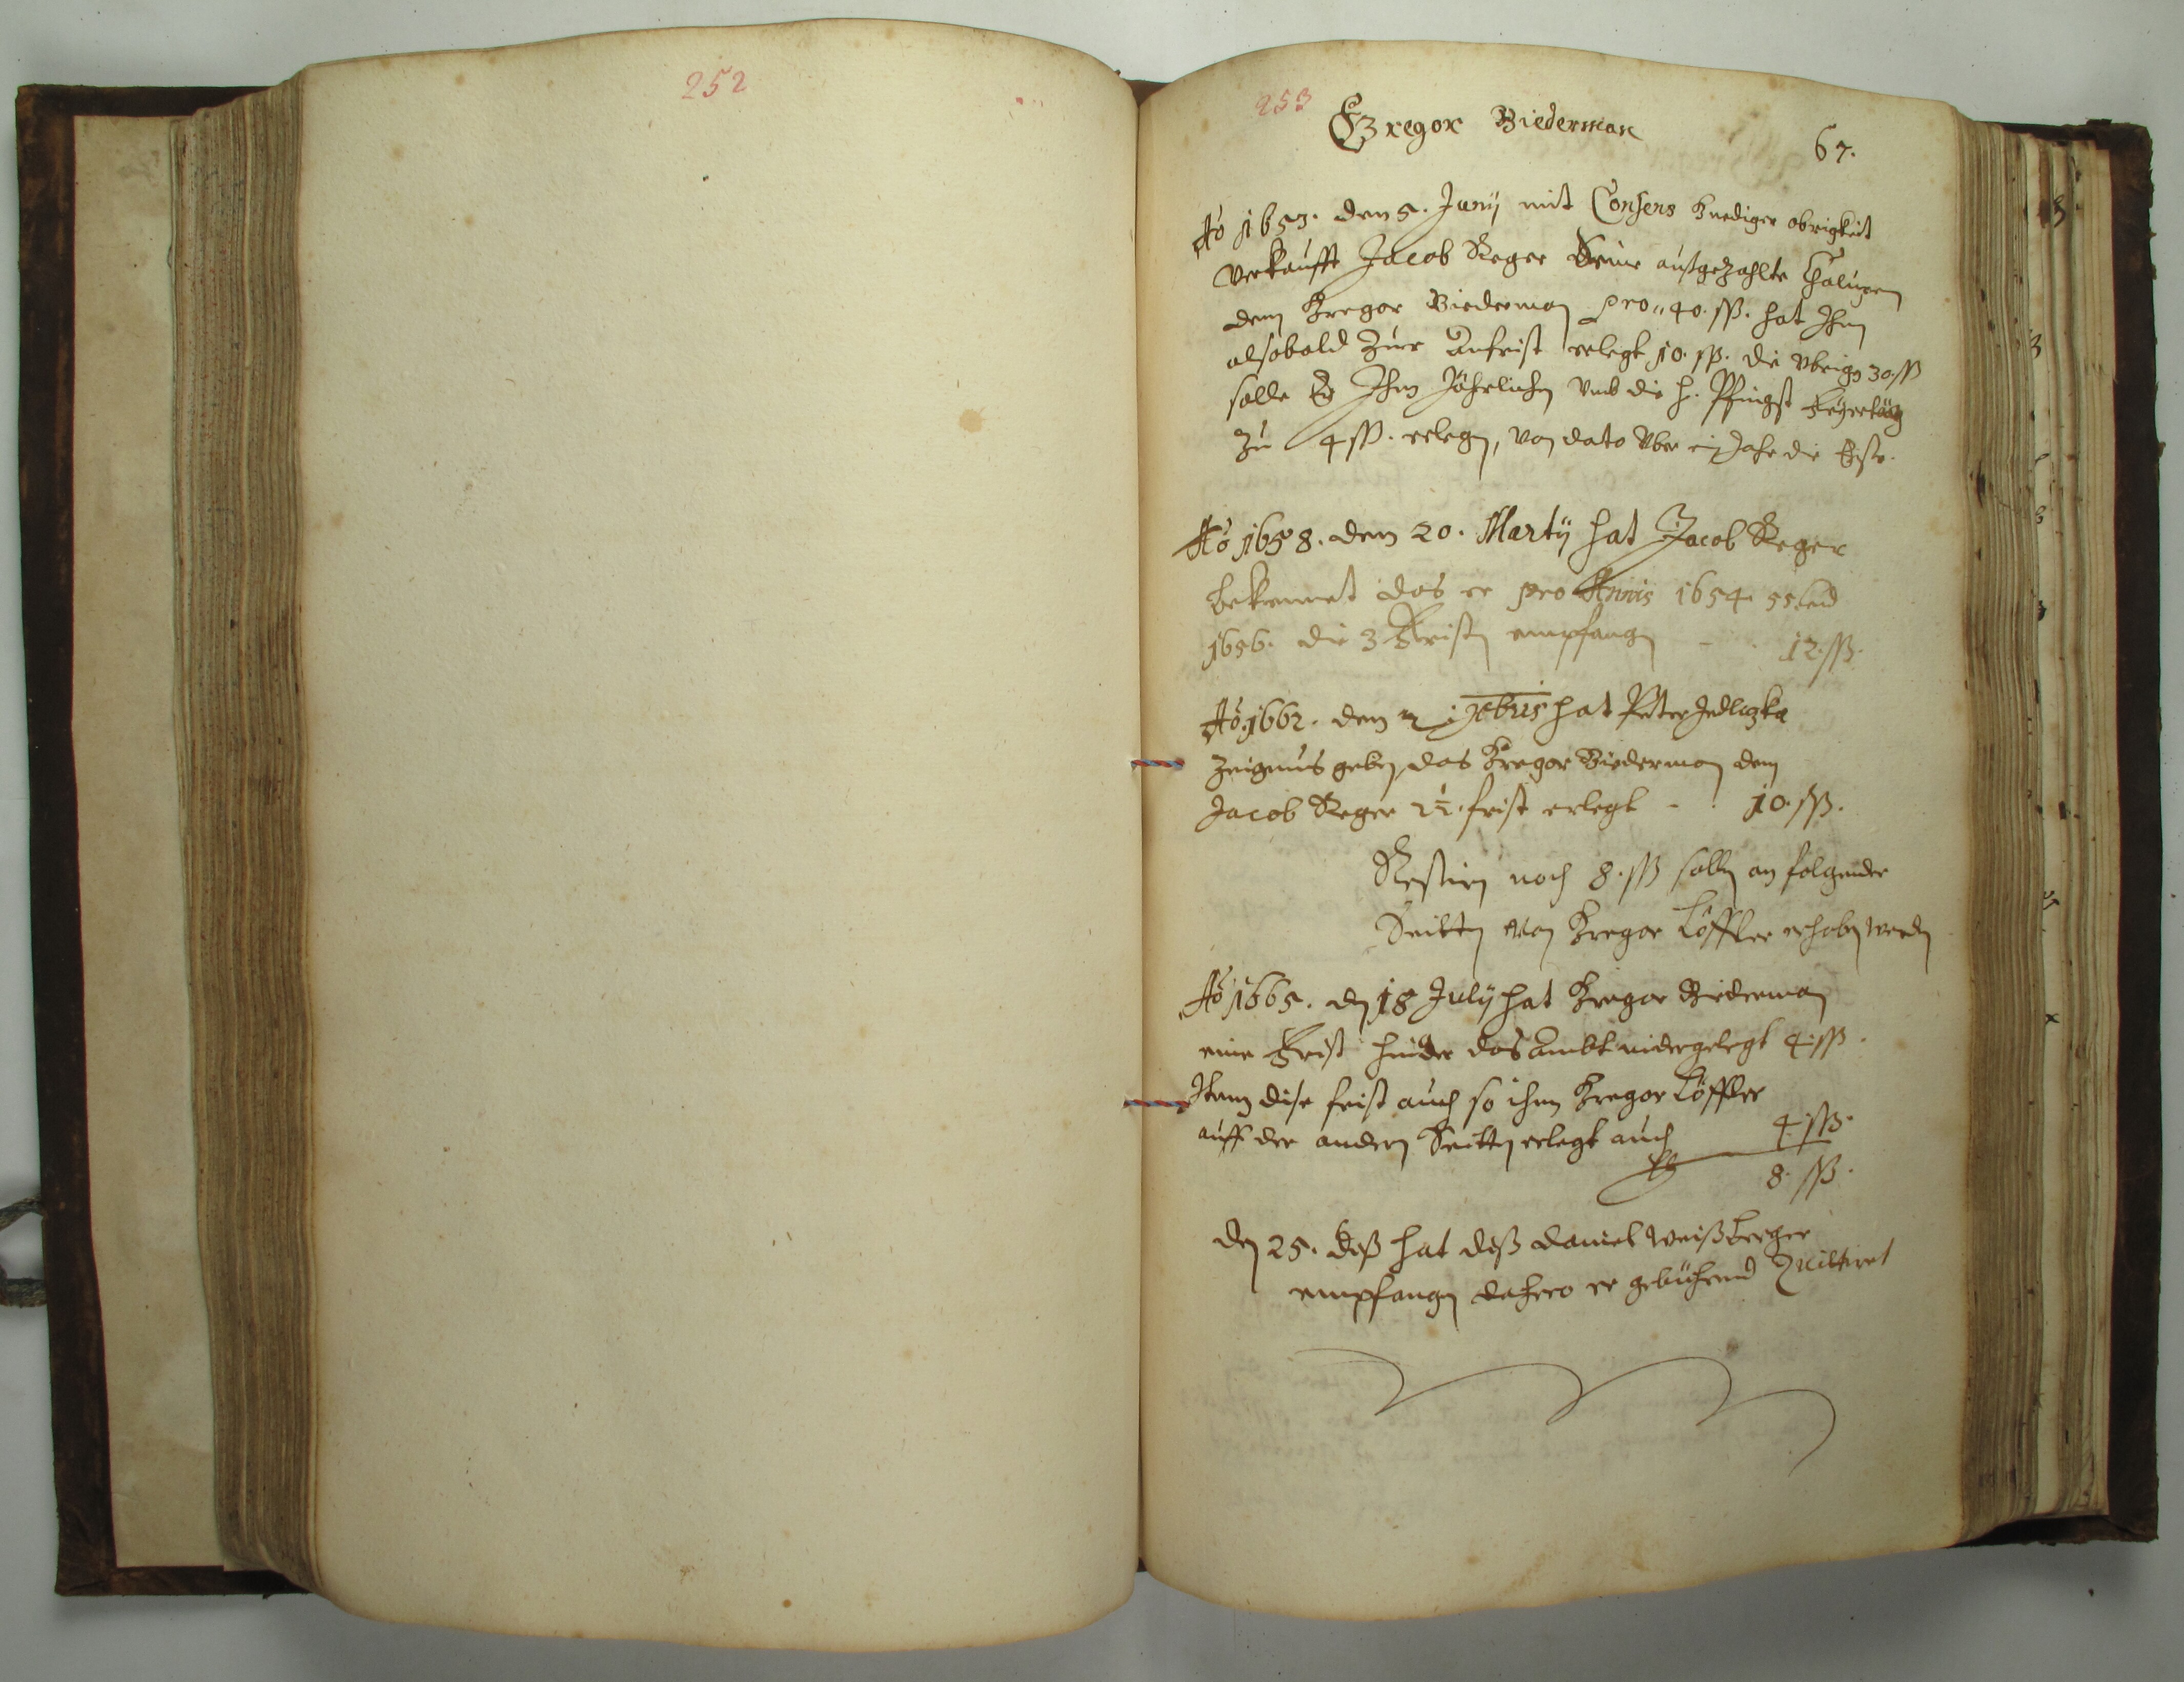 252
253
Gregor Biederman
67.
Aō 1653. den 5. Junÿ mit Consens Gnediger obrigkeit
verkaufft Jacob Reger Seine außgezahlte Chalupen
dem Gregor Biederman pro 40. ß. hat Ihm
alsobald Zur Anfrist erlegt 10. ß. die vbrigen 30. ß
solle Er Ihm Jährlichen vmb die h. Pfingst Feÿertäg
Zu 4 ß. erlegen, von dato vber ein Jahr die Erste.
Aō 1658. den 20. Martÿ hat Jacob Reger
bekennet das er pro Annis 1654. 55. und
1656. die 3 Fristen empfangen - 12. ß.
Aō 1662. den xbris hat Peter Jedliczka
Zeignus geben, das Gregor Biederman dem
Jacob Reger 2½. frist erlegt - 10. ß.
Restiren noch 8. ß sollen an folgender
Seitten von Gregor Löffler erhoben werden
Aō 1665. den 18 Julÿ hat Gregor Biederman
eine Frist hinder das Ambt nidergelegt 4. ß.
Item dise frist auch so ihm Gregor Löffler
auff der andern Seitten erlegt auch 4. ß.
8. ß.
den 25. diß hat diß Daniel
empfangen dahero er gebührend Quittiret